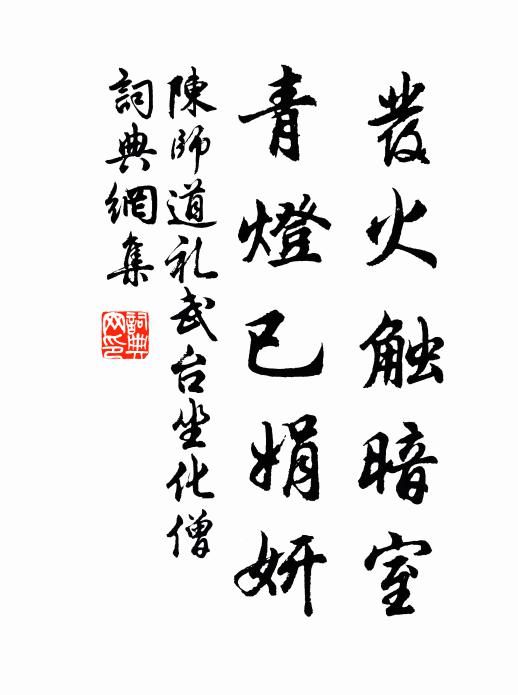 發火触暗室
青燈已娟妍
陳師道礼武台坐化僧
詞典網集
詞典
网印